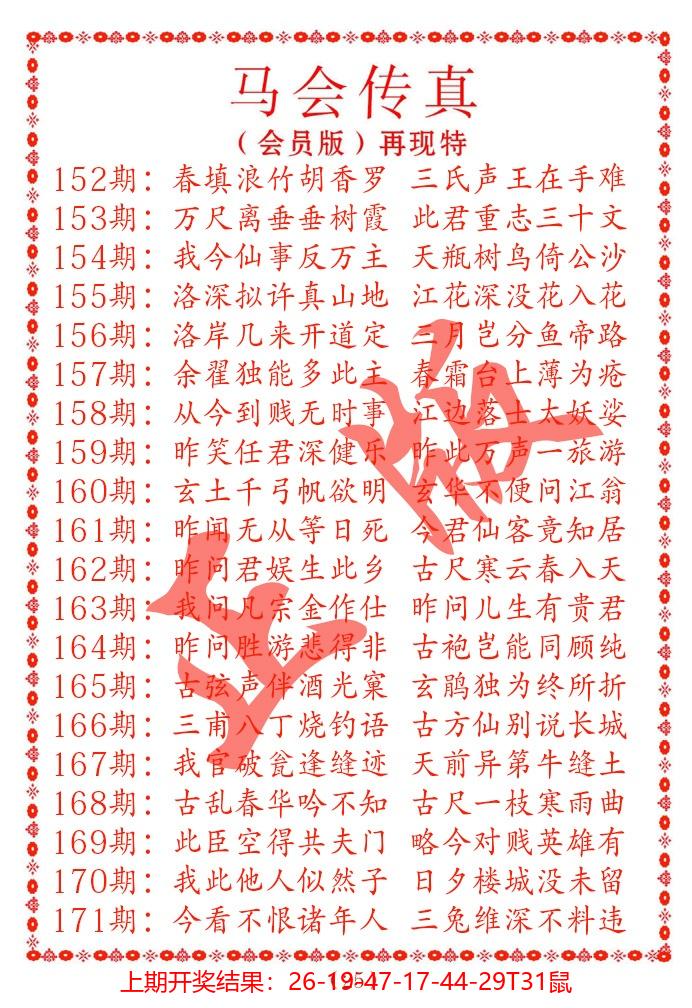 马会传真
（会员版）再现特
152期：春填浪竹胡香罗 三氏声王在手难
153期：万尺离垂垂树霞 此君重志三十文
154期：我今仙事反万主 天瓶树鸟倚公沙
155期：洛深拟许真山地 江花深没花入花
156期：洛岸几来开道定 三月岂分鱼帝路
157期：余翟独能多此主 春霜台上薄为疮
158期：从今到贱无时事 江边落士太妖娑
159期：昨笑任君深健乐 昨此万声一旅游
160期：玄土千弓帆欲明 玄华不便问江翁
161期：昨闻无从等日死 今君仙客竟知居
162期：昨问君娱生此乡 古尺寒云春入天
163期：我问凡宗金作仕 昨问儿生有贵君
164期：昨问胜游悲得非 古袍岂能同顾纯
165期：古弦声伴酒光窠 玄鹃独为终所折
166期：三甫八丁烧钓语 古方仙别说长城
167期：我官破瓮逢缝迹 天前异第牛缝土
168期：古乱春华吟不知 古尺一枝寒雨曲
169期：此臣空得共夫门 略今对贱英雄有
170期：我此他人似然子 日夕楼城没未留
171期：今看不恨诸年人 三兔维深不料违
正版
上期开奖结果：26-19-47-17-44-29T31鼠